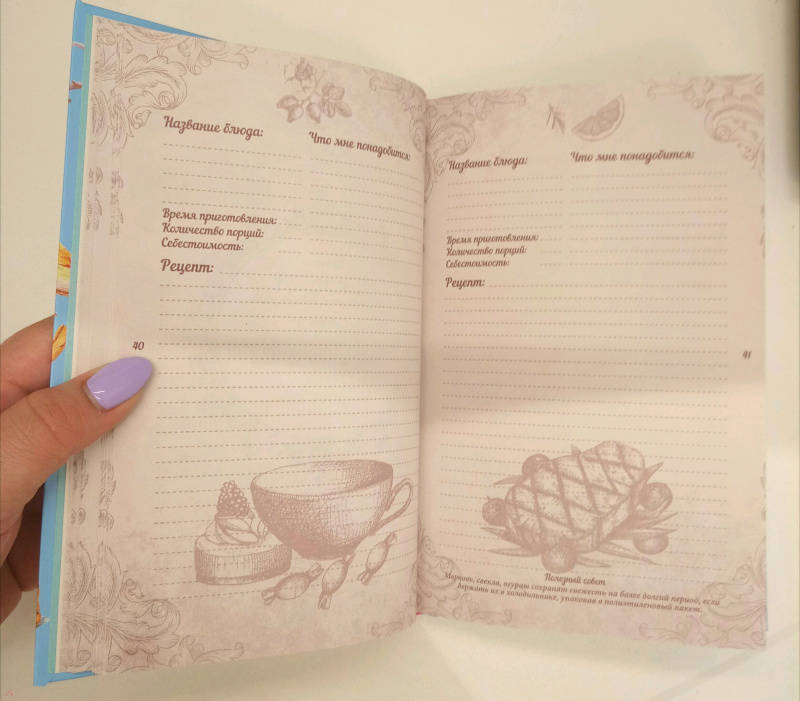 Название блюда:
Что мне понадобится:
Время приготовления:
Количество порций:
Себестоимость:
Рецепт:
40
Название блюда:
Что мне понадобится:
Время приготовления:
Количество порций:
Себестоимость:
Рецепт:
41
Полезный совет
Морковь, свекла, огурцы сохранят свежесть на более долгий период, если
держать их в холодильнике, упаковав в полиэтиленовый пакет.